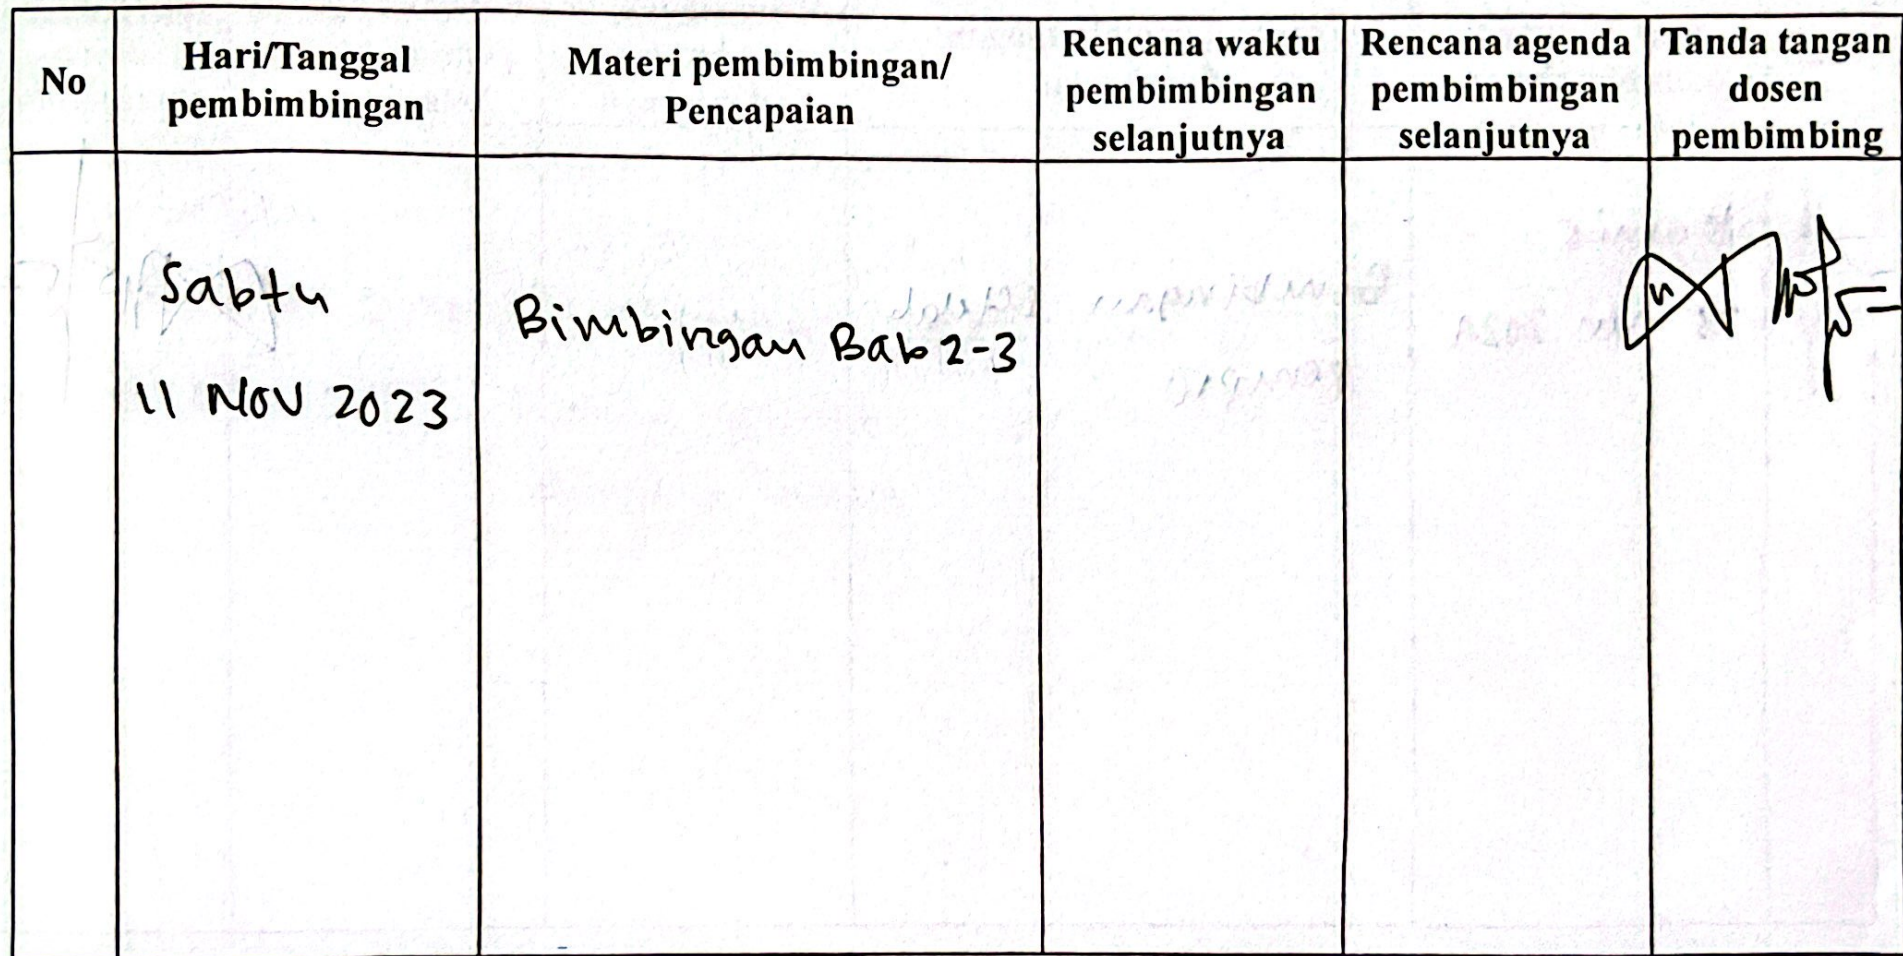 No
Hari/Tanggal
pembimbingan
Materi pembimbingan/
Pencapaian
Rencana waktu
pembimbingan
selanjutnya
Rencana agenda
pembimbingan
selanjutnya
Tanda tangan
dosen
pembimbing
Sabtu
11 Nov 2023
Bimbingan Bab 2-3